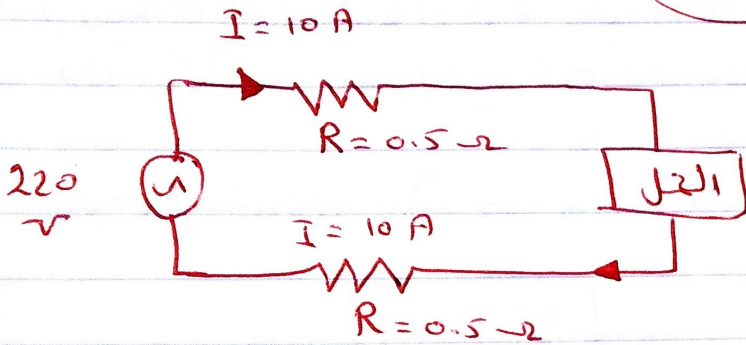 I = 10 A
R = 0.5 Ω
220
v
الحمل
I = 10 A
R = 0.5 Ω